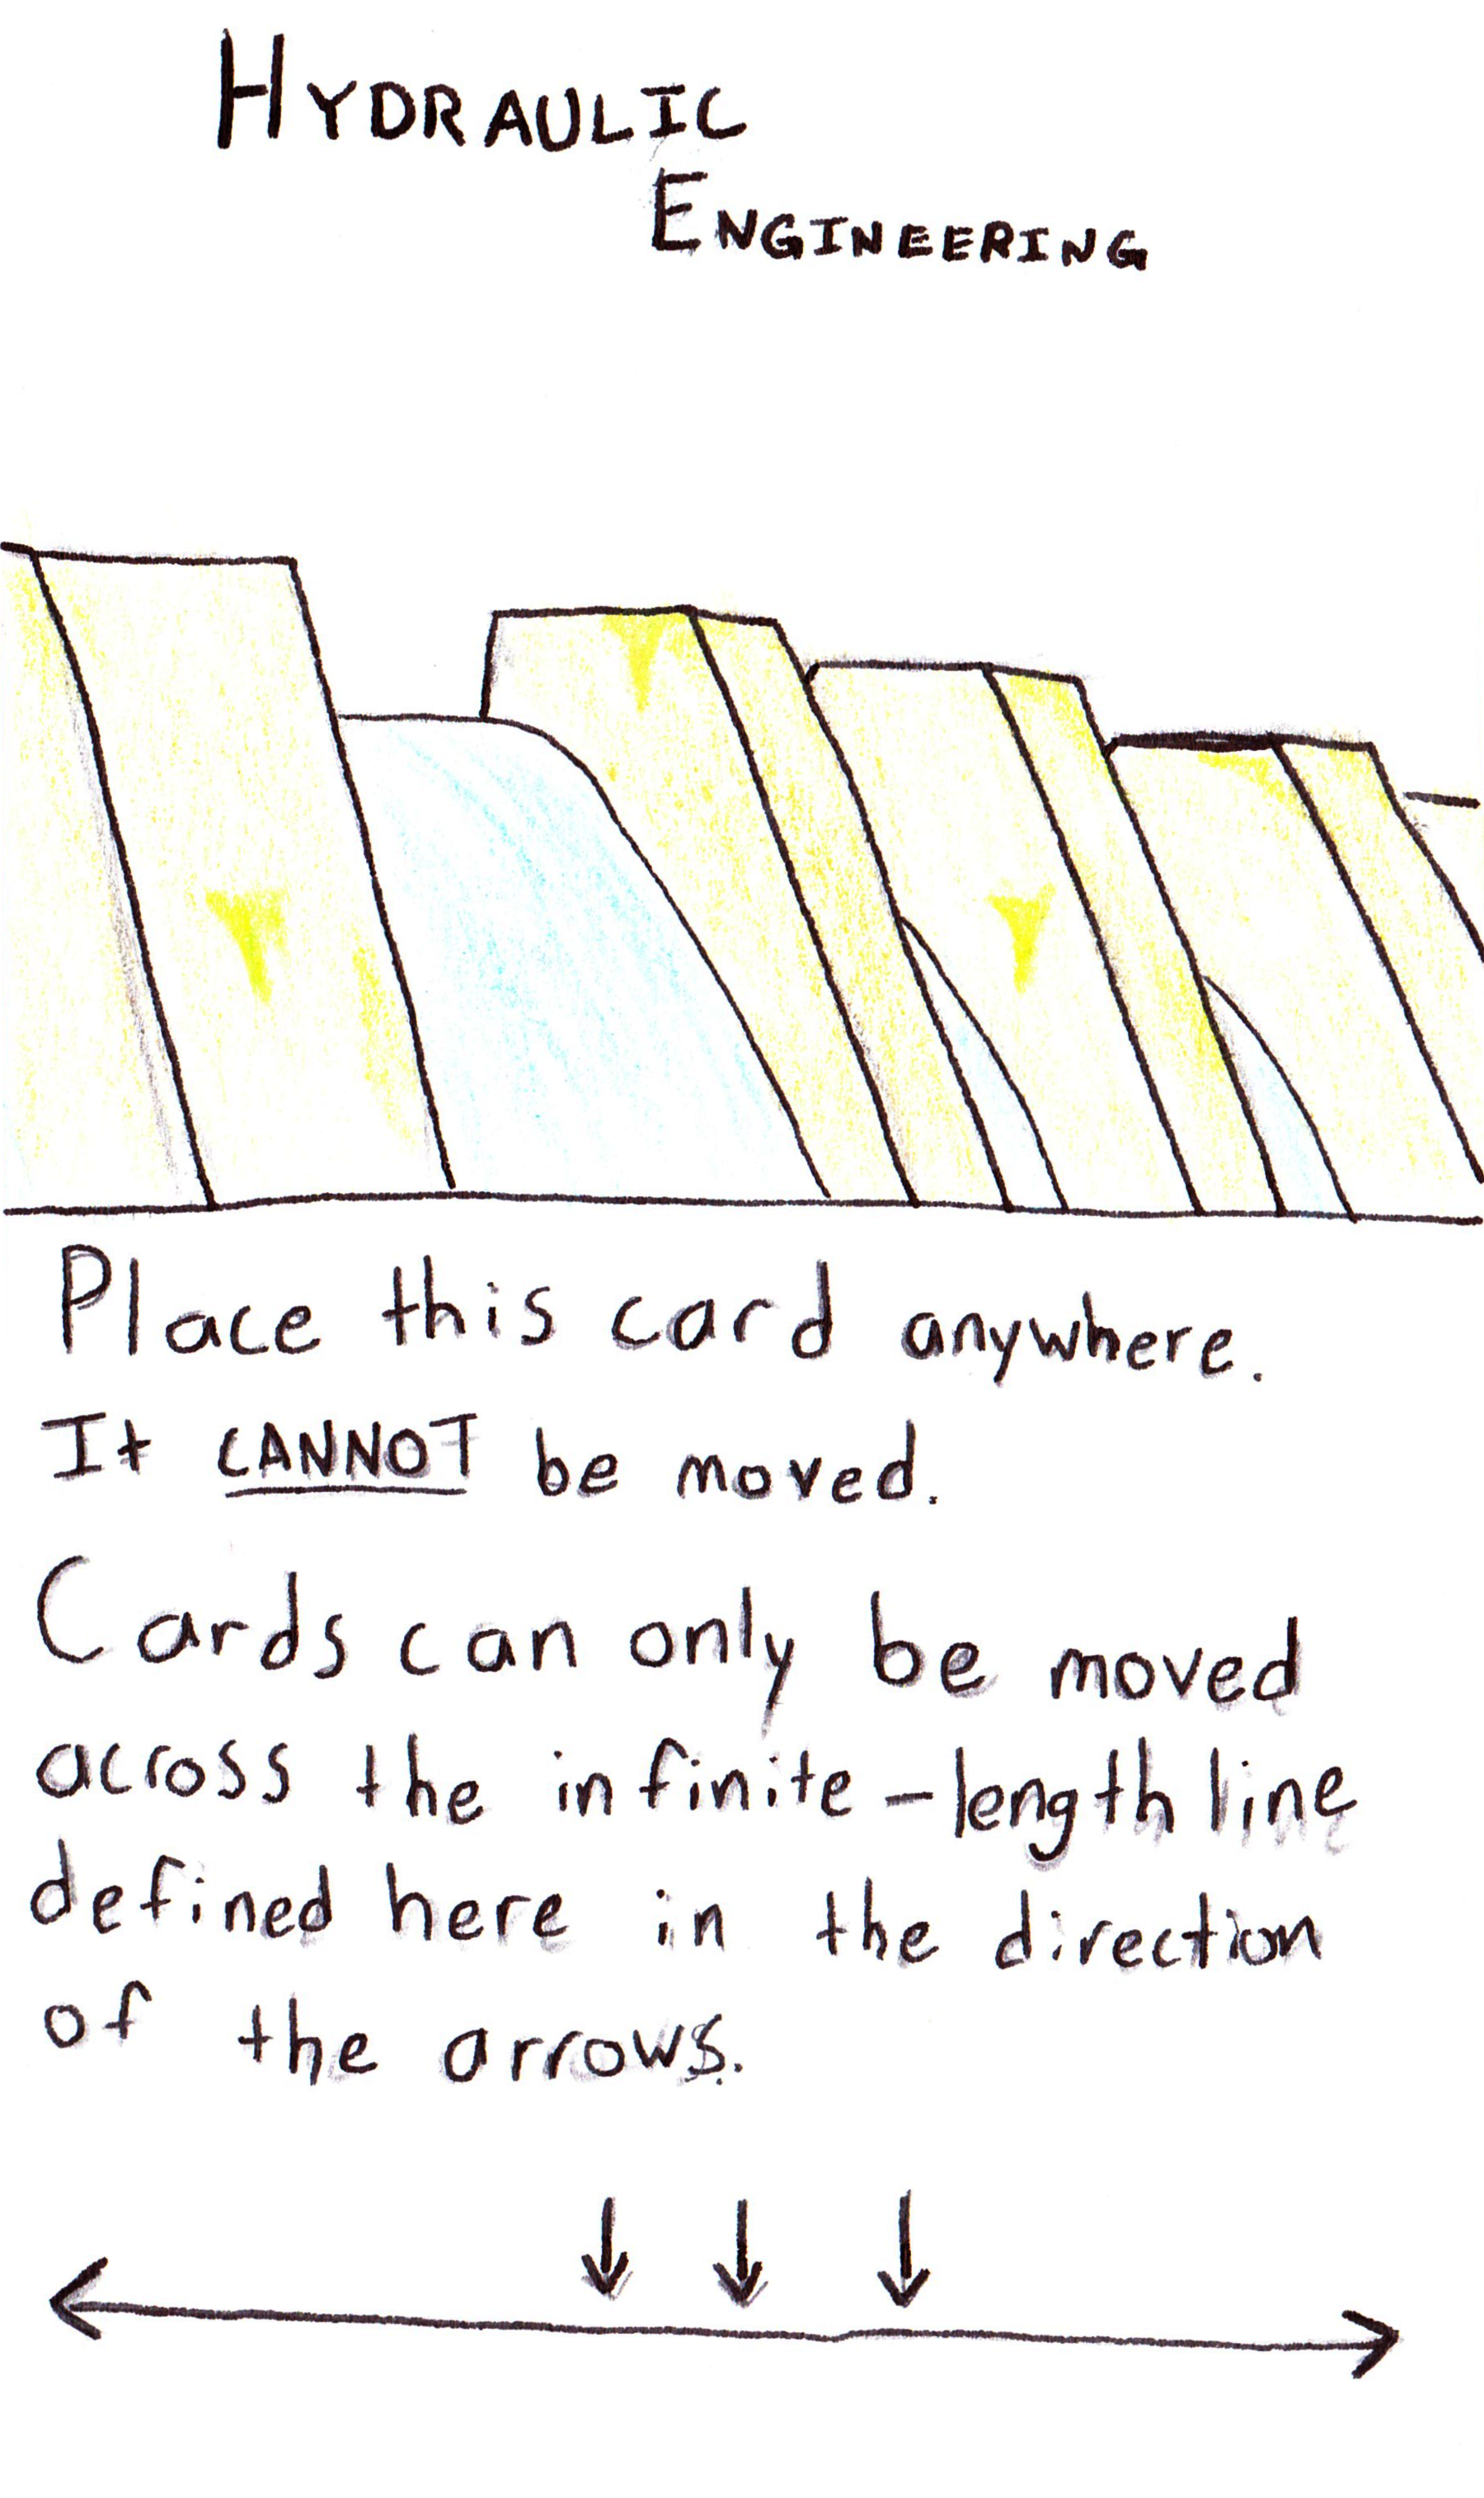 HYDRAULIC
ENGINEERING
Place this card anywhere.
It CANNOT be moved.
Cards can only be moved
across the infinite-length line
defined here in the direction
of the arrows.